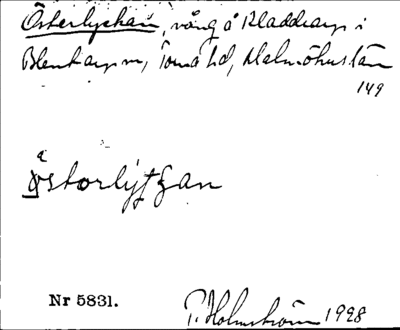 Österlyckan, vång å Kladdrarp i
Blentarp sn, Torna hd, Malmöhus län
149
a
östorlytʒan
Nr 5831.
P. Holmström 1928